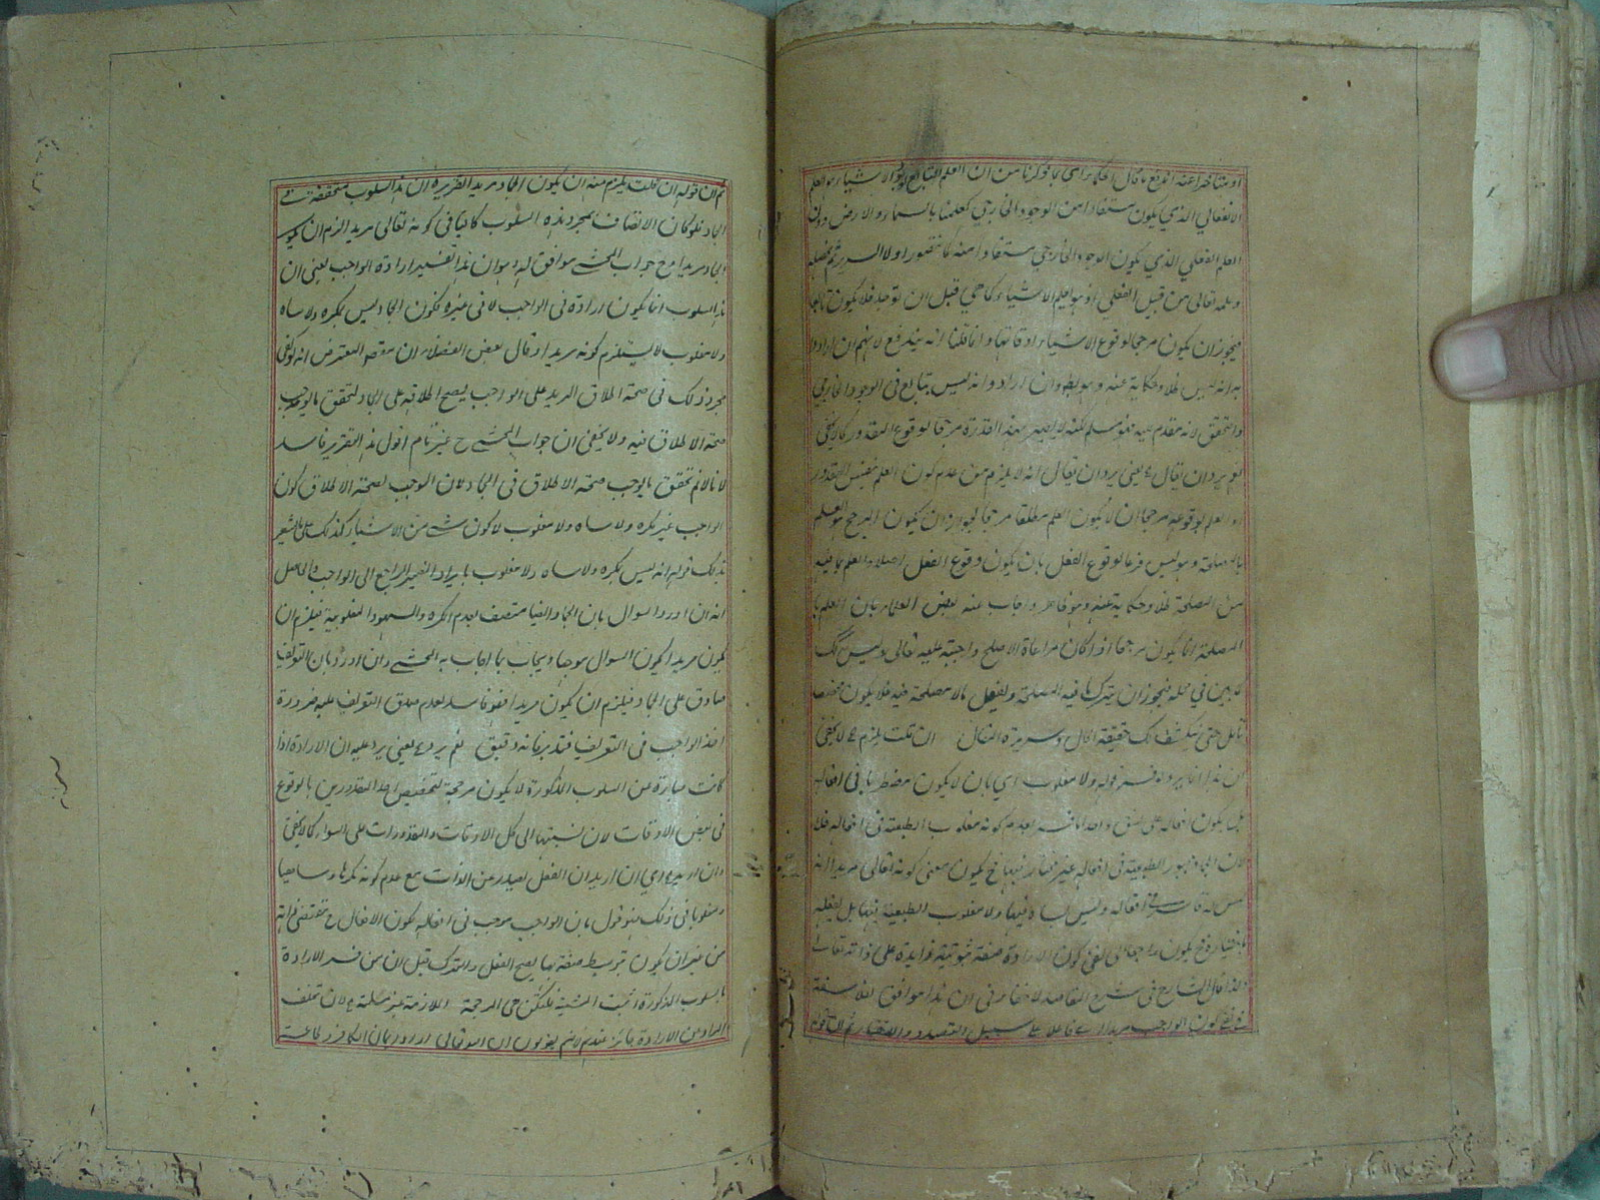 او متأخرا عنه اندفع ما قال الحكماء من ان العلم التابع لوقوع الاشياء هو العلم
الانفعالي الذي يكون مستفادا من الوجود الخارجي كعلمنا بالسماء والارض دون
العلم الفعلي الذي يكون الوجود الخارجي مستفادا منه كما نتصور اولا السرير ثم نفعله
وعلمه تعالى من قبيل الفعلي اذ هو يعلم الاشياء كما هي قبل ان توجد فلا يكون تابعا
فيجوز ان يكون مرجحا لوقوع الاشياء في اوقاتها وانما قلنا انه يندفع لانهم ان ارادوا
به انه ليس ظلا وحكاية عنه وهو بط وان ارادوا انه ليس بتابع في الوجود الخارجي
والتحقق لانه مقدم عليه فهو مسلم لكنه لا يصير بهذا القدر مرجحا لوقوع المقدور كما لا يخفى
نعم يرد ان يقال يعني يرد ان يقال انه لا يلزم من عدم كون العلم بنفس المقدور
او العلم بوقوعه مرجحا ان لا يكون العلم مطلقا مرجحا لجواز ان يكون المرجح هو العلم
بالمصلحة وهو ليس فرعا لوقوع الفعل بان يكون وقوع الفعل اصلا والعلم بما فيه
من المصلحة ظلا وحكاية عنه وهو ظاهر واجاب عنه بعض العلماء بان العلم با
المصلحة انما يكون مرجحا اذا كان مراعاة الاصلح واجبة عليه تعالى وليس كذلك
كما بين في محله فيجوز ان يترك ما فيه المصلحة ويفعل ما لا مصلحة فيه فلا يكون مخصصا
تأمل حتى ينكشف لك حقيقة الحال وسريرة المقال ان قلت يلزم لا يخفى
ان هذا انما يرد لو فسر قوله ولا مغلوب اي بان لا يكون مضطرا في افعاله
بل يكون افعاله على نسق واحد اما فسر بعدم كونه مغلوب الطبيعة في افعاله فلا
لان الجماد مقهور الطبيعة في افعاله غير مختار فيها فح يكون معنى كونه تعالى مريدا انه
ليس له قاسر في افعاله وليس ساه فيها ولا مغلوب الطبيعة فيها بل يفعله
باختياره فح يكون راجعا الى نفي كون الارادة صفة ثبوتية زايدة على ذاته تعالى
ولذا قال الشارح في شرح المقاصد لا خفاء في ان هذا موافق للفلاسفة
في نفي كون الواجب مريدا اي فاعلا على سبيل القصد والاختيار ثم ان قوله
ثم ان قوله ان قلت يلزم منه ان يكون الجماد مريدا تقريره ان هذه السلوب متحققة في
الجماد فلو كان الاتصاف بمجرد هذه السلوب كافيا في كونه تعالى مريدا لزم ان يكون
الجماد مريدا وح جواب المحشي موافق له وهو ان هذا تفسير ارادة الواجب يعني ان
هذه السلوب انما يكون ارادة في الواجب لا في غيره فكون الجماد ليس بمكره ولا ساه
ولا مغلوب لا يستلزم كونه مريدا وقال بعض الفضلاء ان مقصود المعترض انه لو كفى
مجرد ذلك في صحة اطلاق المريد على الواجب يصح اطلاقه على الجماد لتحقق ما يوجب
صحة الاطلاق فيه ولا يخفى ان جواب المحشي ح غير تام اقول هذا التقرير فاسد
لانا لانم تحقق ما يوجب صحة الاطلاق في الجماد لان الموجب لصحة الاطلاق كون
الواجب غير مكره ولا ساه ولا مغلوب لا كون شيء من الاشياء كذلك على ما يشعر
بذلك قوله انه ليس بمكره ولا ساه ولا مغلوب بايراد الضمير الراجع الى الواجب والحاصل
انه ان اورد السوال بان الجماد ايضا متصف بعدم الكره والسهو والمغلوبية فيلزم ان
يكون مريدا يكون السوال موجها ويجاب بما اجاب به المحشي وان اورد بان التعريف
صادق على الجماد فيلزم ان يكون مريدا فهو فاسد لعدم صدق التعريف عليه ضرورة
اخذ الواجب في التعريف فتدبر فانه دقيق ثم يرد يعني يرد عليه ان الارادة اذا
كانت عبارة عن السلوب المذكورة لا يكون مرجحة لتخصيص احد المقدورين بالوقوع
في بعض الاوقات لان نسبتها الى كل الاوقات والمقدورات على السواء كما لا يخفى
وان اريد اي ان اريد ان الفعل يصدر عن الذات مع عدم كونه مكرها وساهيا
ومغلوبا في ذلك فهو قول بان الواجب موجب في افعاله يكون الافعال ح مقتضى ذاته
من غير ان يكون بتوسط صفة بها يصح الفعل والترك قيل ان من فسر الارادة
بالسلوب المذكورة اثبت المشية فلتكن هي المرجحة الملازمة غير مسلمة لان تخلف
المراد عن الارادة جائز عندهم لانهم يقولون ان الله تعالى اراد ايمان الكافر وطاعته